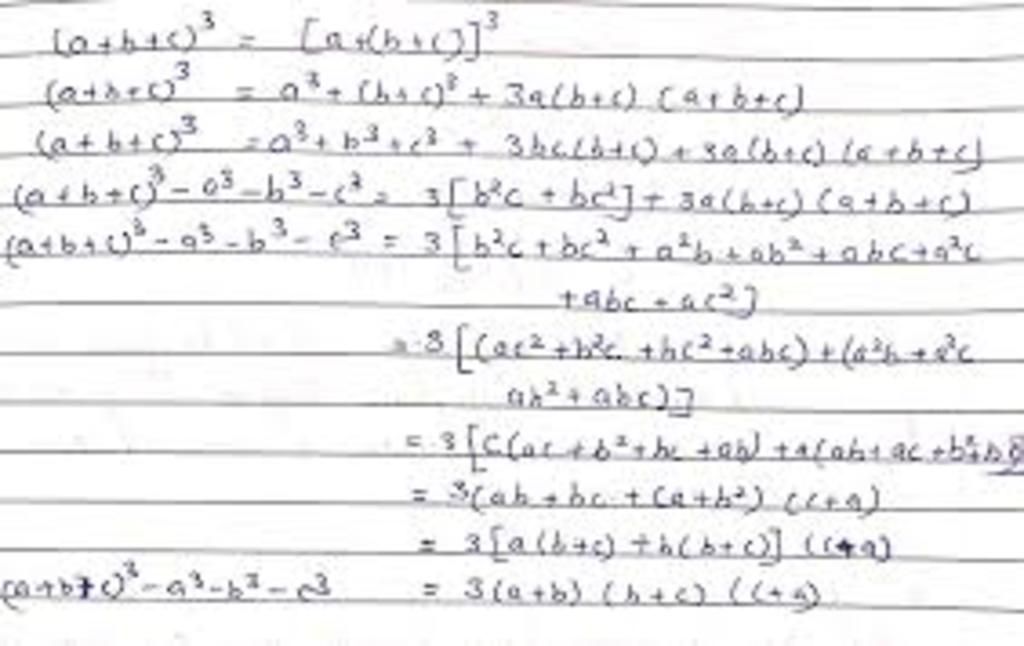 (a+b+c)³ = [a+(b+c)]³
(a+b+c)³ = a³+(b+c)³ + 3a(b+c) (a+b+c)
(a+b+c)³ = a³+b³+c³ + 3bc(b+c) + 3a(b+c) (a+b+c)
(a+b+c)³-a³-b³-c³ = 3[b²c + bc²] + 3a(b+c) (a+b+c)
(a+b+c)³-a³-b³-c³ = 3[b²c + bc² + a²b + ab² + abc + a²c
+abc + ac²]
= 3[(ac²+b²c +bc²+abc)+(a²b+a²c
ab²+abc)]
= 3[c(ac+b²+bc+ab) +a(ab+ac+b²+b
= 3(ab+bc+ca+b²) (c+a)
= 3[a(b+c) +b(b+c)] (c+a)
(a+b+c)³-a³-b³-c³ = 3(a+b) (b+c) (c+a)